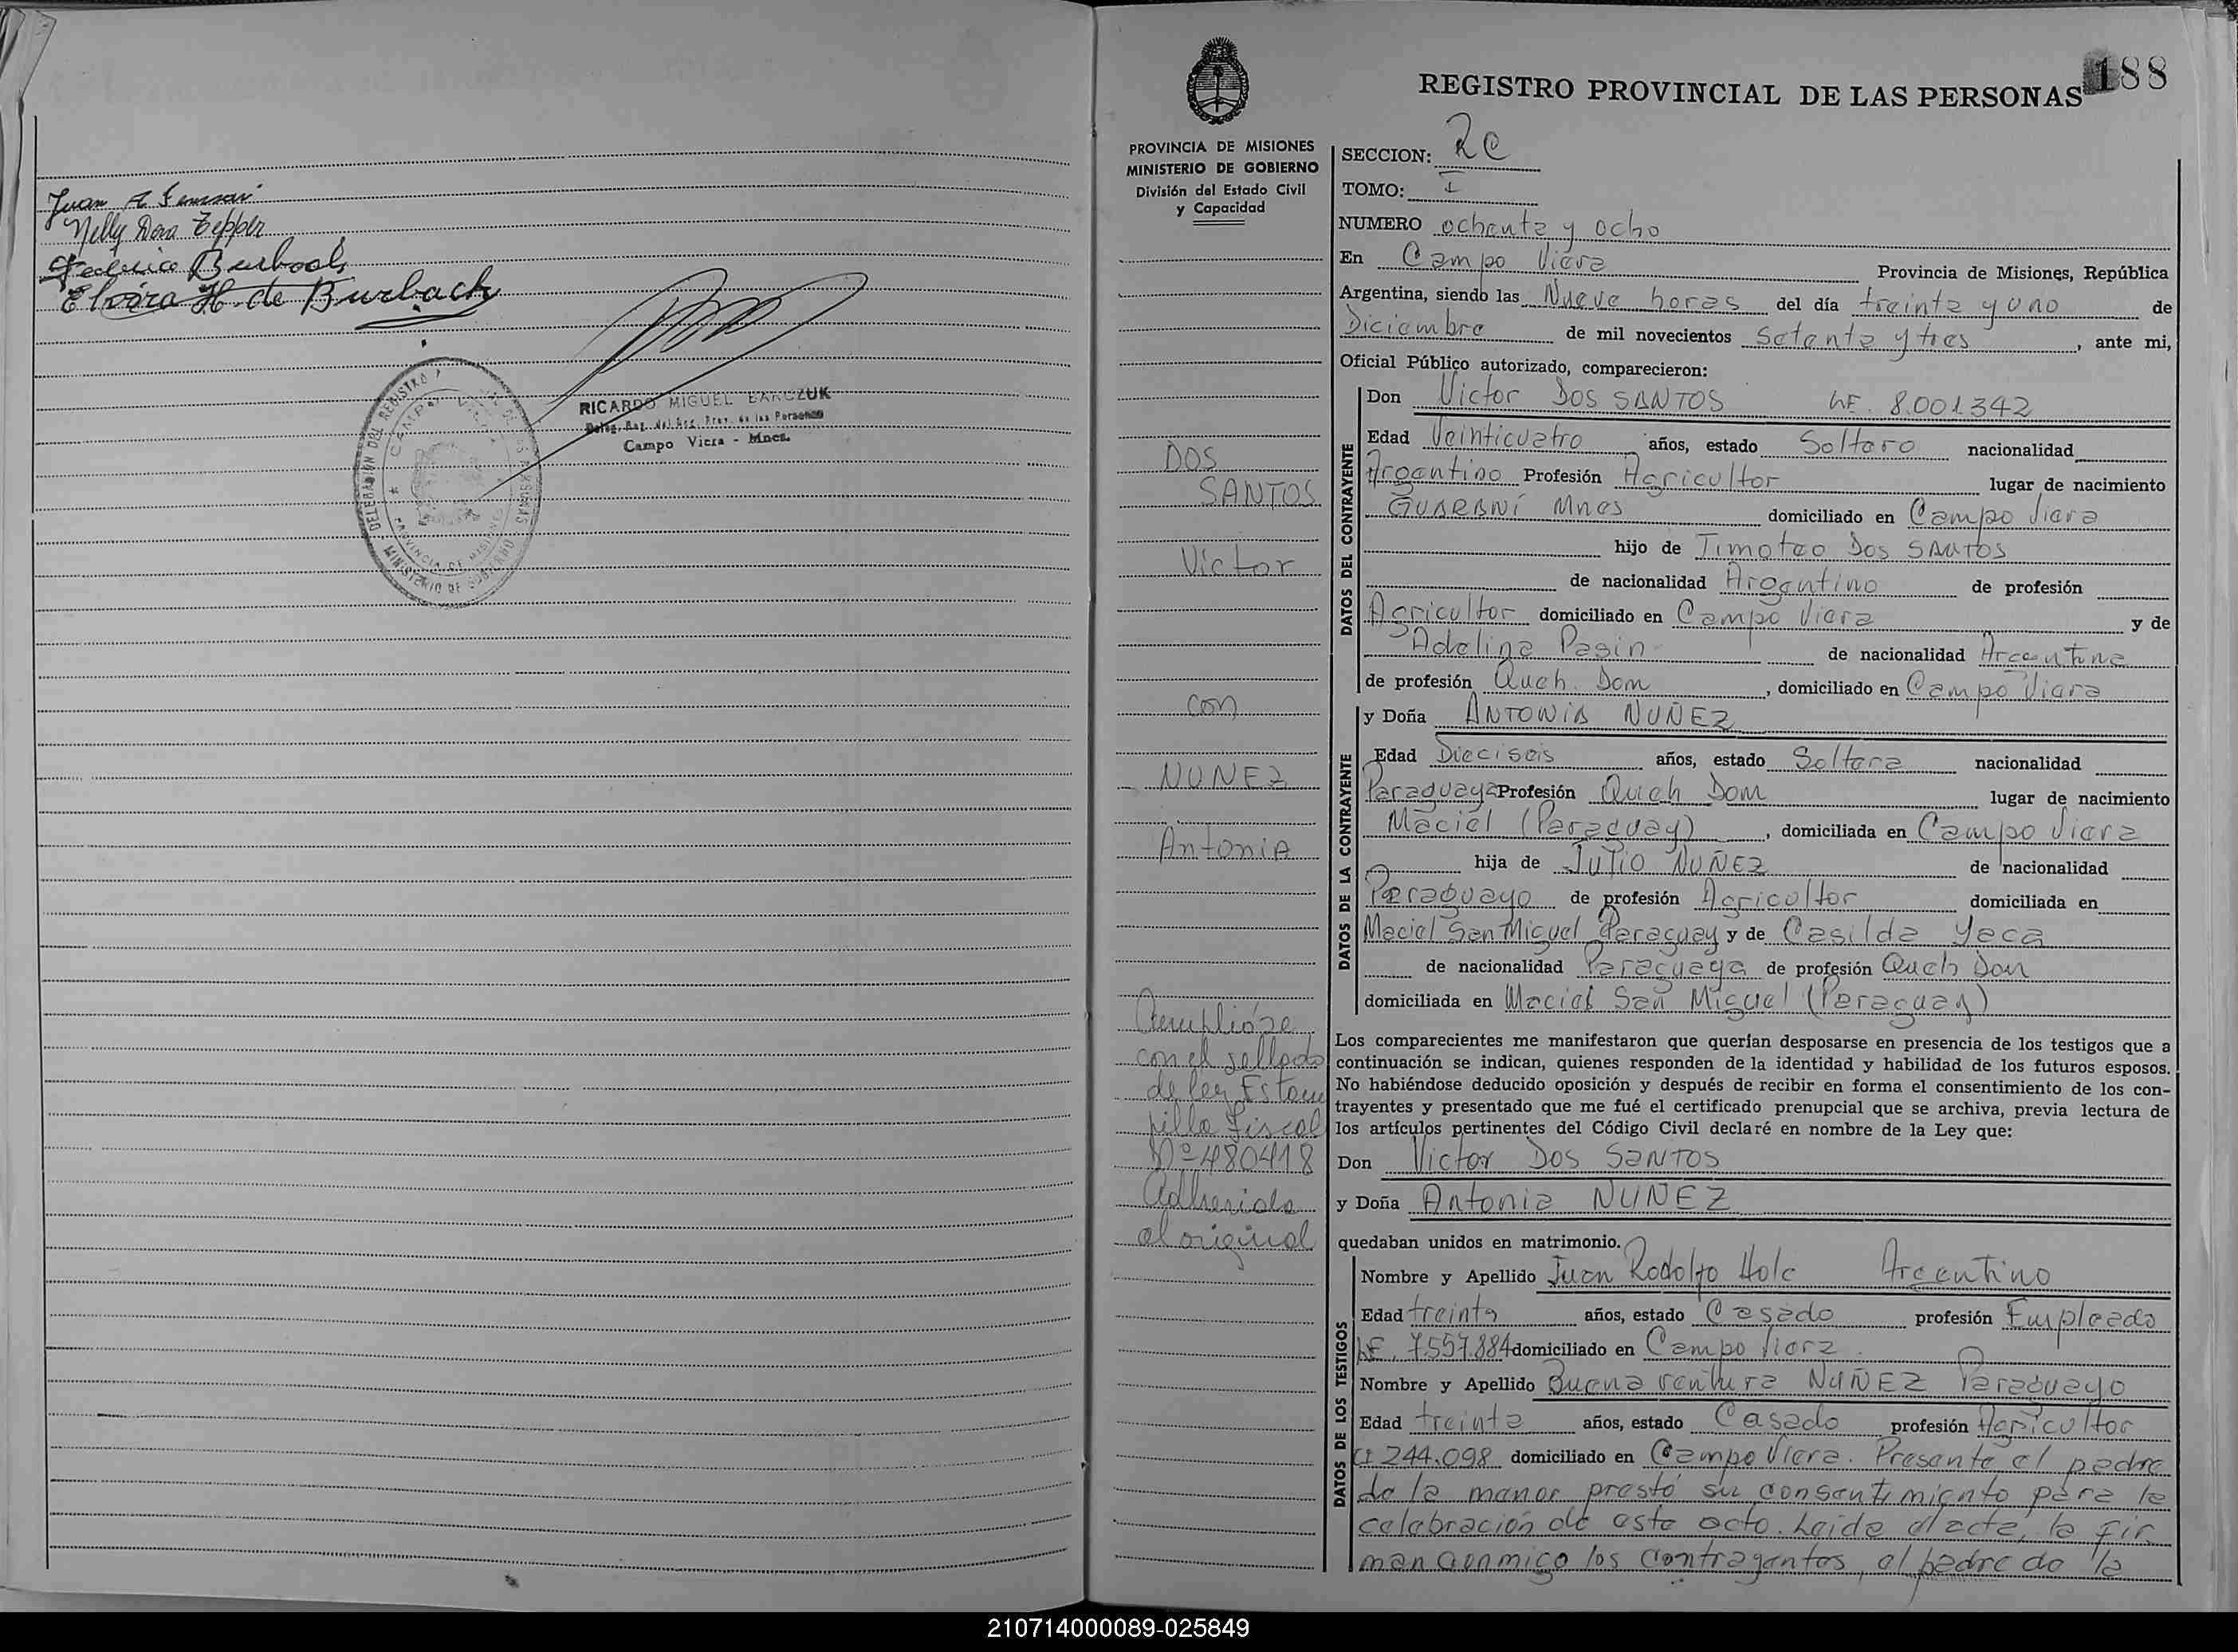 Juan A
Nelly Dora Tepper
Federico Burbach
Elvira H. de Burbach
RICARDO MIGUEL BARCZUK
Deleg. Reg. del Reg. Prov. de las Personas
Campo Viera - Mnes.
DELEGACION DEL REGISTRO
CAMPO VIERA
PROVINCIA DE MISIONES
MINISTERIO DE GOBIERNO
188
REGISTRO PROVINCIAL DE LAS PERSONAS
PROVINCIA DE MISIONES
MINISTERIO DE GOBIERNO
División del Estado Civil
y Capacidad
DOS
SANTOS
Victor
con
NUÑEZ
Antonia
Cumplióse
con el sellado
de ley Estam
pilla fiscal
Nº 480418
Adherida
al original
SECCION: RC
TOMO: I
NUMERO ochenta y ocho
En Campo Viera Provincia de Misiones, República
Argentina, siendo las Nueve horas del día treinta y uno de
Diciembre de mil novecientos Setenta y tres, ante mi,
Oficial Público autorizado, comparecieron:
DATOS DEL CONTRAYENTE
Don Victor DOS SANTOS LE. 8.001.342
Edad Veinticuatro años, estado Soltero nacionalidad
Argentino Profesión Agricultor lugar de nacimiento
GUARANÍ Mnes domiciliado en Campo Viera
hijo de Timoteo Dos SANTOS
de nacionalidad Argentino de profesión
Agricultor domiciliado en Campo Viera y de
Adelina Pasin de nacionalidad Argentina
de profesión Queh. Dom, domiciliado en Campo Viera
DATOS DE LA CONTRAYENTE
y Doña ANTONIA NUÑEZ
Edad Dieciseis años, estado Soltera nacionalidad
Paraguaya Profesión Queh Dom lugar de nacimiento
Maciel (Paraguay), domiciliada en Campo Viera
hija de Julio NUÑEZ de nacionalidad
Paraguayo de profesión Agricultor domiciliada en
Maciel San Miguel Paraguay y de Casilda Yaca
de nacionalidad Paraguaya de profesión Queh Dom
domiciliada en Maciel San Miguel (Paraguay)
Los comparecientes me manifestaron que querían desposarse en presencia de los testigos que a
continuación se indican, quienes responden de la identidad y habilidad de los futuros esposos.
No habiéndose deducido oposición y después de recibir en forma el consentimiento de los con-
trayentes y presentado que me fué el certificado prenupcial que se archiva, previa lectura de
los artículos pertinentes del Código Civil declaré en nombre de la Ley que:
Don Victor DOS SANTOS
y Doña Antonia NUÑEZ
quedaban unidos en matrimonio.
DATOS DE LOS TESTIGOS
Nombre y Apellido Juan Rodolfo Holc Argentino
Edad treinta años, estado Casado profesión Empleado
LE. 7.557.884 domiciliado en Campo Viera
Nombre y Apellido Buenaventura NUÑEZ Paraguayo
Edad treinta años, estado Casado profesión Agricultor
CI 244.098 domiciliado en Campo Viera. Presente el padre
de la menor prestó su consentimiento para la
celebración de este acto. Leida el acta, la fir
man conmigo los contrayentes, el padre de la
210714000089-025849